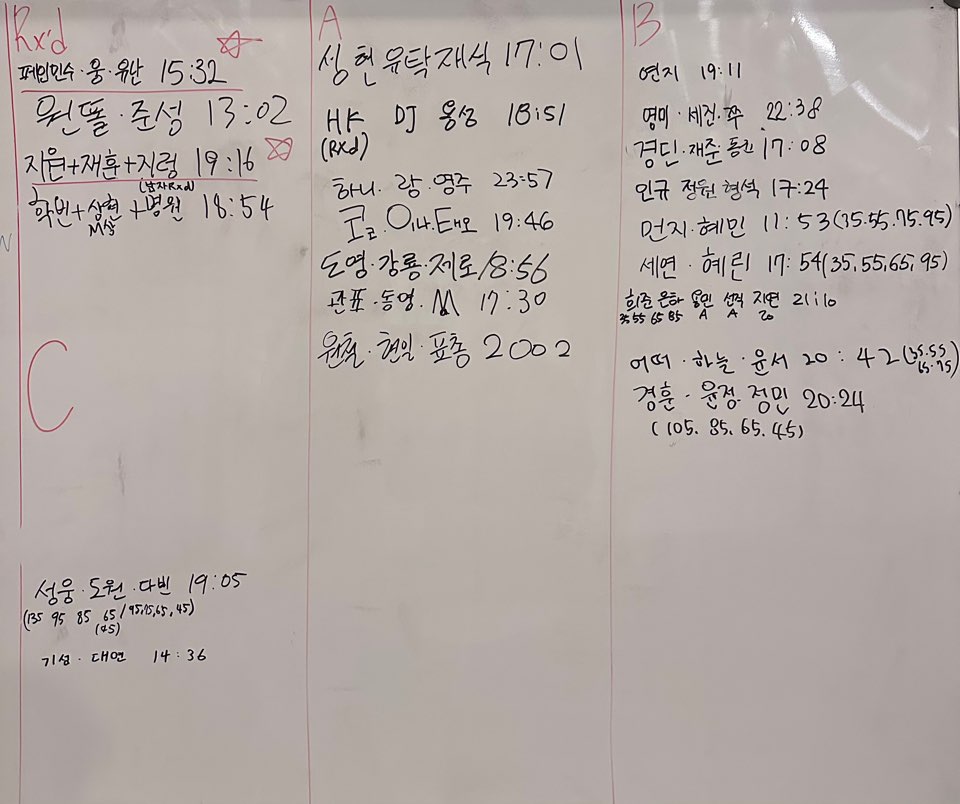 Rx'd
폐인민수·웅·유난 15:32
원똘·준성 13:02
지원+재훈+지령 19:16
(남자Rxd)
학빈+상현+명원 18:54
M상
C
성웅·도원·다빈 19:05
(135 95 85 65/95,75,65,45)
(45)
기성·대연 14:36
A
성현 유탁 재식 17:01
HK DJ 용성 18:51
(RXd)
하니·람·영주 23:57
코코·이나·태오 19:46
도영·강룡·제로 18:56
관표·동영·M 17:30
원철·현일·표총 2002
B
연지 19:11
영미·세진· 22:38
경딘·재준 17:08
인규 정원 형석 17:24
먼지·혜민 11:53(75.55.75.95)
세연·혜린 17:54(35,55,65,95)
희준 은하 용민 선적 지연 21:10
35 55 65 85 A A 20
어떠·하늘·윤서 20:42(35.55
65.75)
경훈·윤정·정민 20:24
(105. 85. 65. 45)